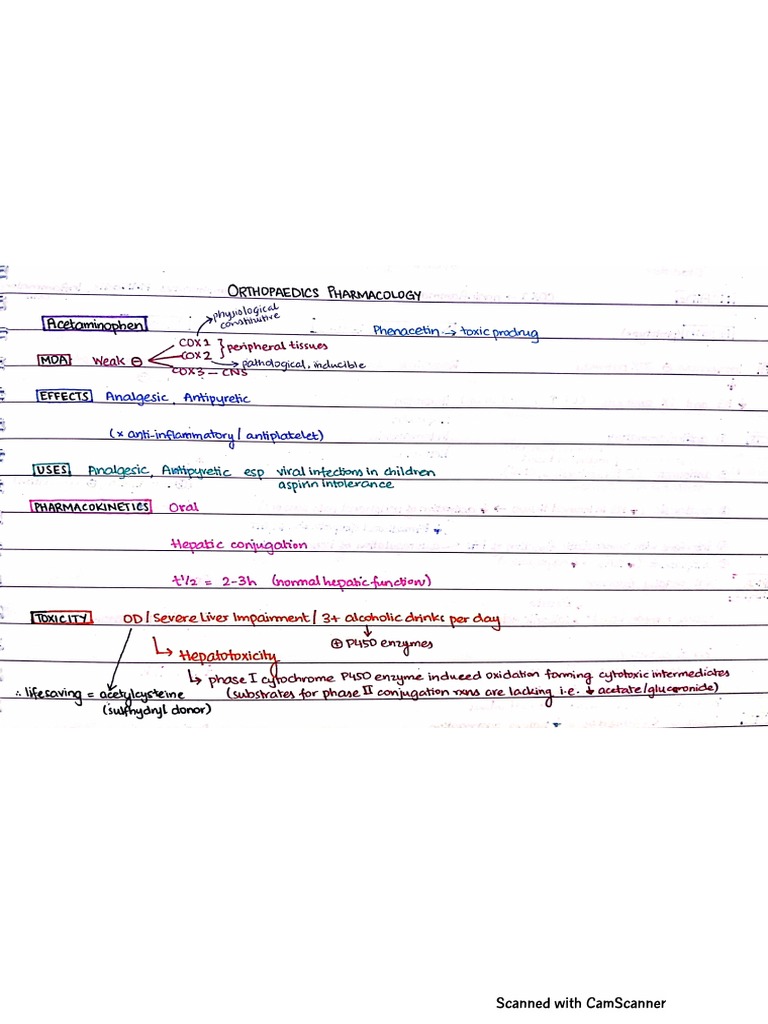 ORTHOPAEDICS PHARMACOLOGY
Acetaminophen
physiological
constitutive
Phenacetin → toxic prodrug
MOA Weak ⊖
COX 1 } peripheral tissues
COX 2 → pathological, inducible
COX 3 — CNS
EFFECTS Analgesic, Antipyretic
(x anti-inflammatory / antiplatelet)
USES Analgesic, Antipyretic esp viral infections in children
aspirin intolerance
PHARMACOKINETICS Oral
Hepatic conjugation
t½ = 2-3h (normal hepatic function)
TOXICITY OD / Severe Liver Impairment / 3+ alcoholic drinks per day
⊕ P450 enzymes
↳ Hepatotoxicity
↳ phase I cytochrome P450 enzyme induced oxidation forming cytotoxic intermediates
∴ lifesaving = acetylcysteine (substrates for phase II conjugation rxns are lacking i.e. ↓ acetate/glucoronide)
(sulfhydryl donor)
Scanned with CamScanner